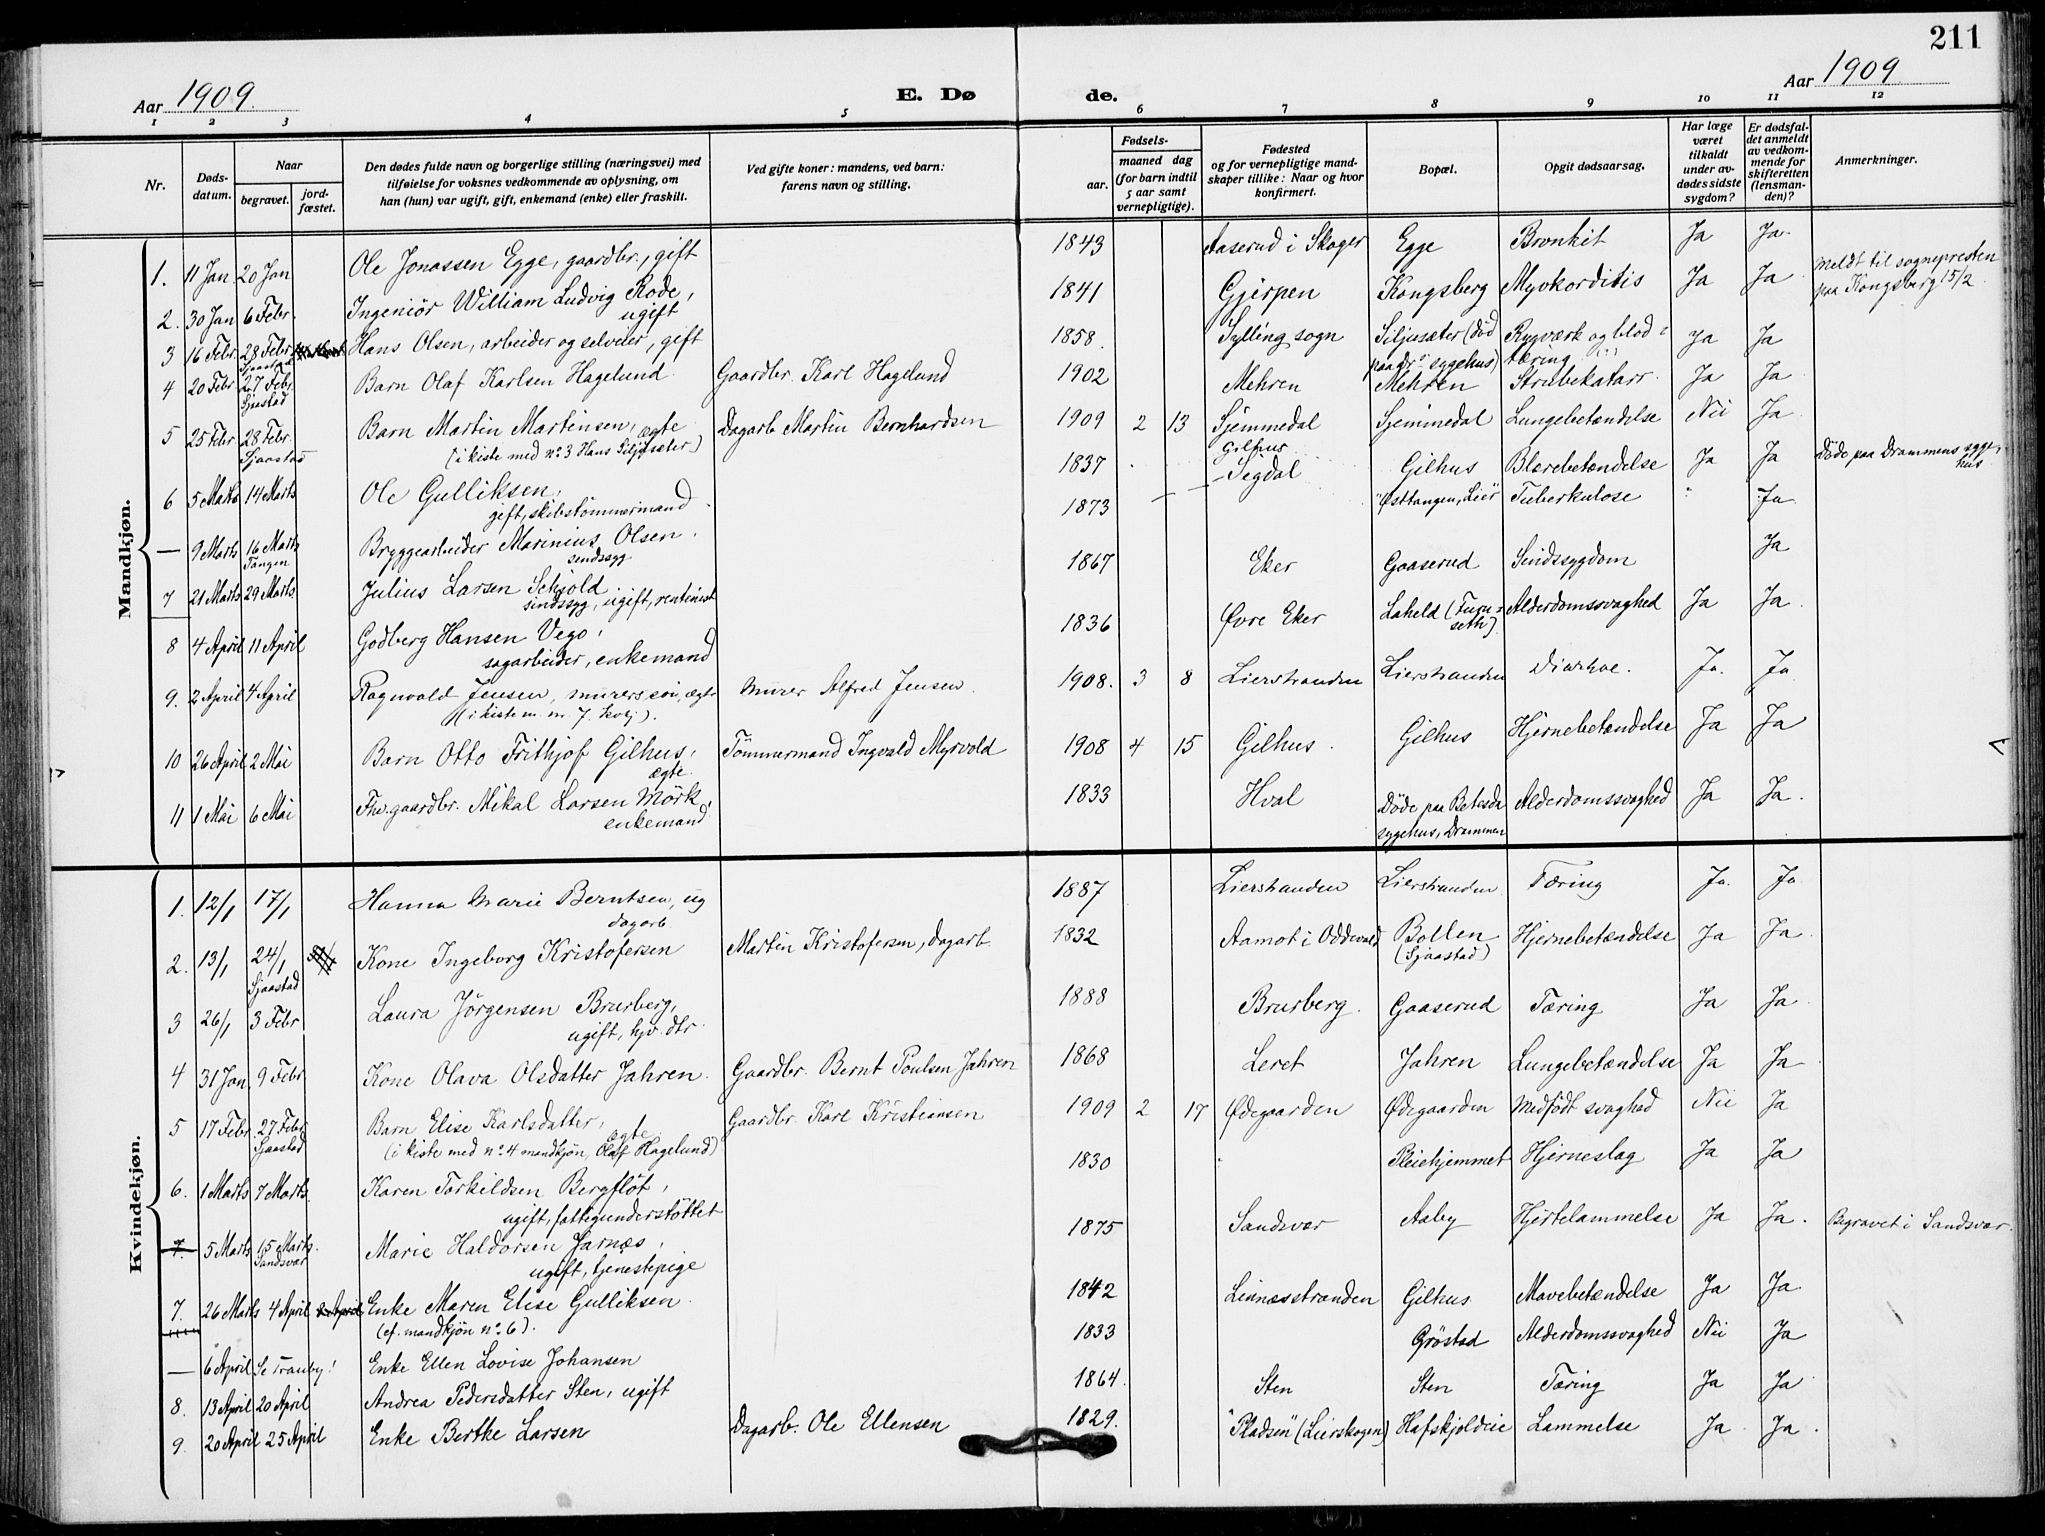 211
Aar 1909.
E. Dø
de.
Aar 1909
1 2 3 4 5 6 7 8 9 10 11 12
Nr.
Døds-
datum.
Naar
begravet.
jord-
fæstet.
Den dødes fulde navn og borgerlige stilling (næringsvei) med
tilføielse for voksnes vedkommende av oplysning, om
han (hun) var ugift, gift, enkemand (enke) eller fraskilt.
Ved gifte koner: mandens, ved barn:
farens navn og stilling.
Fødsels-
aar.
maaned dag
(for barn indtil
5 aar samt
vernepligtige).
Fødested
og for vernepligtige mand-
skaper tillike: Naar og hvor
konfirmert.
Bopæl.
Opgit dødsaarsag.
Har læge
været
tilkaldt
under av-
dødes sidste
sygdom?
Er dødsfal-
det anmeldt
av vedkom-
mende for
skifteretten
(lensman-
den)?
Anmerkninger.
Mandkjøn.
1. 11 Jan 20 Jan Ole Jonassen Egge, gaardbr., gift 1843 Aaserud i Skoger Egge Bronkit Ja Ja
2. 30 Jan 6 Febr. Ingeniör William Ludvig Rode, 1841 Gjerpen Kongsberg Myokorditis Ja Ja Meldt til sognepresten
ugift paa Kongsberg 15/2
3 16 Febr. 28 Febr. Hans Olsen, arbeider og selveier, gift 1858. Sylling sogn Siljusæter (død Rygværk og blod-
Sjaastad paa dr. sygehus) tæring Ja Ja
4 20 Febr. 27 Feb, Barn Olaf Karlsen Hagelund Gaardbr. Karl Hagelund 1902 Mehren Mehren Strubekatarr. Ja Ja
Sjaastad
5 25 Febr. 28 Febr. Barn Martin Martinsen, ægte Dagarb. Martin Bernhardsen 1909 2 13 Sjemmedal Sjemmedal Lungebetændelse Nei Ja
Sjaastad (i kiste med no 3 Hans Siljusæter)
6 5 Marts 14 Marts Ole Gulliksen, 1837 Gilhus Segdal Gilhus Blærebetændelse Ja Ja Döde paa Drammens syge-
gift, skibstömmermand. hus
— 9 Marts 16 Marts Bryggearbeider Marinius Olsen. 1873 — — Østtangen, Lier Tuberkulose " Ja
Tangen sindssyg
7 21 Marts 29 Marts Julius Larsen Schjold 1867 Eker Gaaserud Sindssygdom Ja
sindssyg, ugift, rentenist
8 4 April 11 April Godberg Hansen Vego, 1836 Øvre Eker Laheld (Furu- Alderdomssvaghed Ja Ja
sagarbeider, enkemand seth)
9. 2 April 4 April Ragnvald Jensen, murers sön, ægte Murer Alfred Jensen. 1908. 3 8 Lierstranden Lierstranden Diarhoe. Ja. Ja
(i kiste m. nr 7. kvkj).
10 26 April 2 Mai Barn Otto Frithjof Gilhus, Tömmermand Ingvald Myrvold 1908 4 15 Gilhus. Gilhus Hjernebetændelse Ja Ja
ægte.
11 1 Mai 6 Mai Fhv. gaardbr. Mikal Larsen Mörk, 1833 Hval Döde paa Betesda Alderdomssvaghed Ja Ja.
enkemand sygehus, Drammen
Kvindekjøn.
1. 12/1 17/1 Hanna Marie Berntsen, ug 1887 Lierstranden Lierstranden Tæring Ja. Ja
dagarb
2. 13/1 24/1 Kone Ingeborg Kristofersen Martin Kristofersen, dagarb. 1832 Aamot i Oddevald Bollen Hjernebetændelse Ja Ja
Sjaastad (Sjaastad)
3 26/1 3 Febr Laura Jörgensen Brurberg, 1888 Brurberg. Gaaserud Tæring Ja Ja
ugift, hjv. dtr.
4 31 Jan 9 Febr. Kone Olava Olsdatter Jahren. Gaardbr. Bernt Poulsen Jahren 1868 Leret Jahren Lungebetændelse Ja Ja
5 17 Febr. 27 Febr Barn Elise Karlsdatter, Gaardbr. Karl Kristiansen 1909 2 17 Ødegaarden Ødegaarden Medfödt svaghed Nei Ja
Sjaastad ægte
(i kiste med no. 4 mandkjön, Olaf Hagelund)
6. 1 Marts 7 Marts. Karen Torkildsen Bergflöt, 1830 Pleiehjemmet Hjerneslag Ja Ja
ugift, fattigunderstöttet
7. 5 Marts 15 Marts. Marie Haldorsen Jarnæs, 1875 Sandsvær Aaby Hjertelammelse Ja Ja. Begravet i Sandsvær.
Sandsvær ugift, tjenestepige
7. 26 Marts 4 April Enke Maren Elise Gulliksen. 1842 Linnæsstranden Gilhus Mavebetændelse Ja Ja
(cf. mandkjön no. 6).
— 6 April Se Tranby! Enke Ellen Lovise Johansen 1833 Gröstad Alderdomssvaghed Nei Ja
8. 13 April 20 April Andrea Pedersdatter Sten, ugift 1864. Sten Sten Tæring Ja Ja
9. 20 April 25 April Enke Berthe Larsen Dagarb. Ole Ellensen 1829. "Pladsen" (Lierskogen) Hafskjoldeie Lammelse Ja Ja.